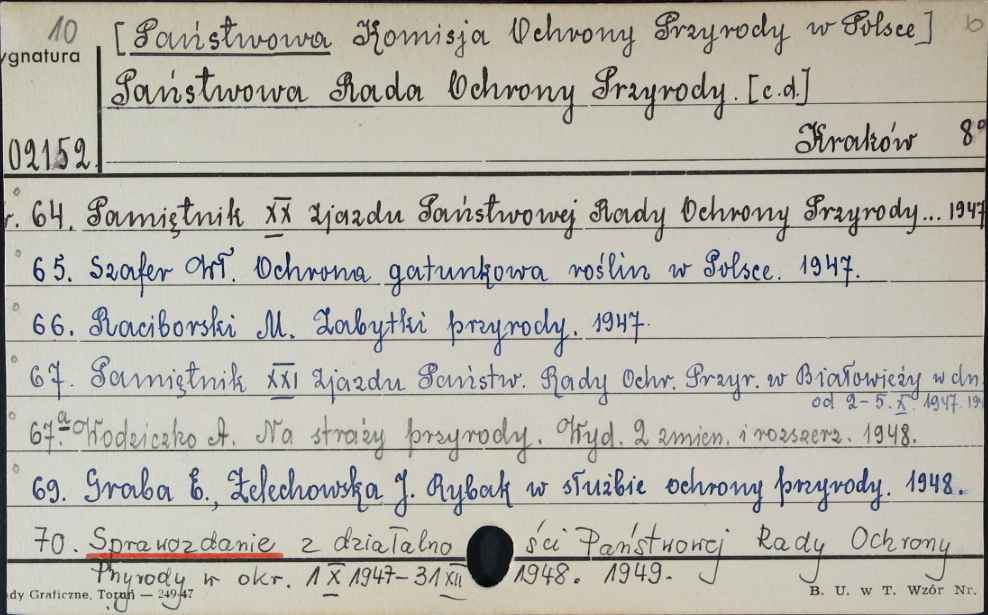 10 [Państwowa Komisja Ochrony Przyrody w Polsce] b
ygnatura
Państwowa Rada Ochrony Przyrody. [c.d.]
02152. Kraków 8°
r. 64. Pamiętnik XX Zjazdu Państwowej Rady Ochrony Przyrody... 1947
65. Szafer Wł. Ochrona gatunkowa roślin w Polsce. 1947.
66. Raciborski M. Zabytki przyrody. 1947.
67. Pamiętnik XXI Zjazdu Państw. Rady Ochr. Przyr. w Białowieży w dn.
od 2-5.X. 1947. 19
67.a Wodziczko A. Na straży przyrody. Wyd. 2 zmien. i rozszerz. 1948.
69. Graba E., Żelechowska J. Rybak w służbie ochrony przyrody. 1948.
70. Sprawozdanie z działalno ści Państwowej Rady Ochrony
Przyrody w okr. 1 X 1947-31 XII 1948. 1949.
dy Graficzne, Toruń — 249-47 B. U. w T. Wzór Nr.